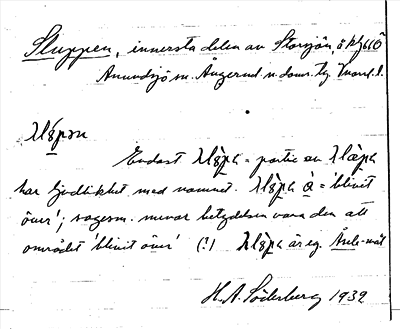 Sluppen, innersta delen av Storsjön, ö kbl 66 Ö
Anundsjö sn. Ångerml. n. doms. tg. Vnorrl. l.
slǿpən
Endast slǿpa = partic av slåpa
har ljudlikhet med namnet. slǿpa å = 'blivit
över'; sagesm. menar betydelsen vara den att
området 'blivit över' (!) slǿpa är eg. Åsele-mål
H. A. Söderberg 1932